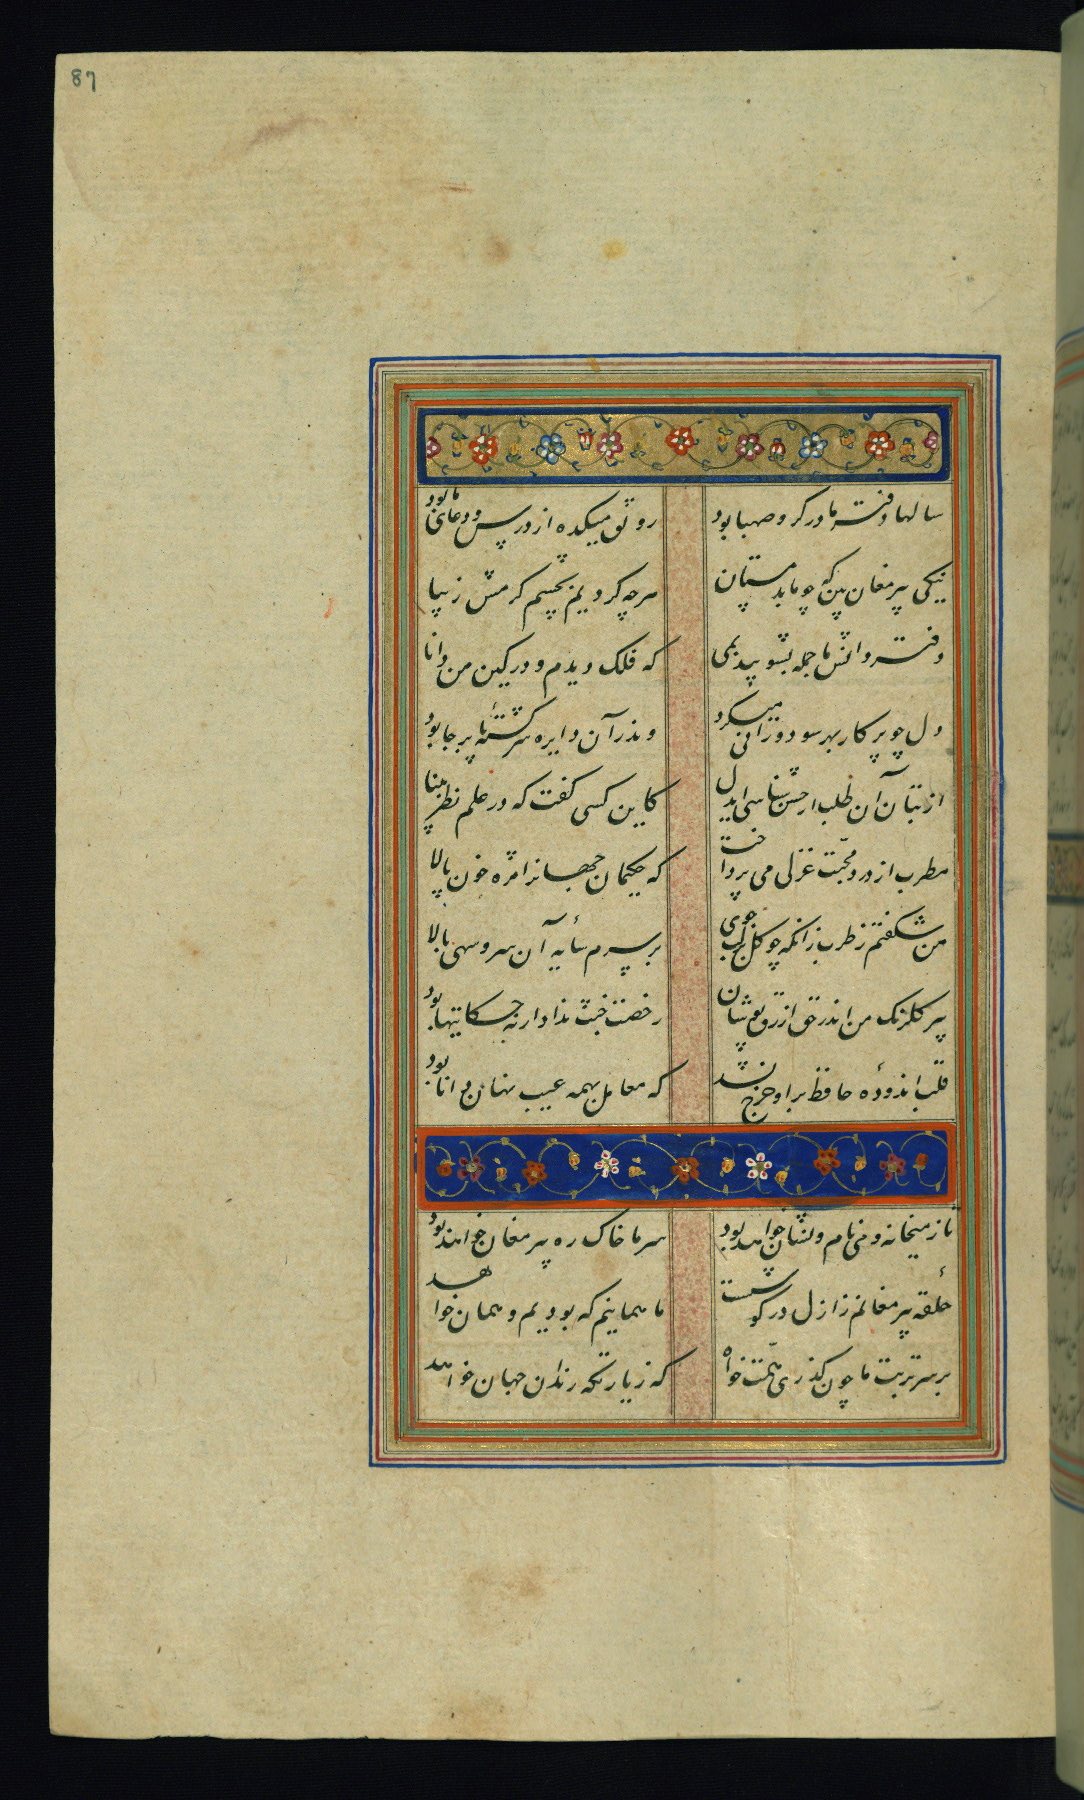 87
سالها دفتر ما در گرو صهبا بود
رونق میکده از درس و دعای ما بود
نیکی پیر مغان بین که چو ما بدمستان
هرچه کردیم بچشم کرمش زیبا
دفتر دانش ما جمله بشویید بمی
که فلک دیدم و در کین من دانا
دل چو پرکار بهر سو دورانی میکرد
وندر آن دایره سرگشتهٔ پا برجا بود
از بتان آن طلب ار حسن شناسی ایدل
کاین کسی گفت که در علم نظر بینا
مطرب از درد محبت غزلی می پرداخت
که حکیمان جهانرا مژه خون پالا
می شکفتم ز طرب زانکه چو گل بر لب جوی
بر سرم سایه آن سرو سهی بالا
پیر گلرنگ من اندر حق ازرق پوشان
رخصت خبث نداد ار نه حکایتها بود
قلب اندودهٔ حافظ بر او خرج نشد
که معامل بهمه عیب نهان دانا بود
تا ز میخانه و می نام و نشان خواهد بود
سر ما خاک ره پیر مغان خواهد بود
حلقه پیر مغانم ز ازل در گوشست
ما همانیم که بودیم و همان خواهد
بر سر تربت ما چون گذری همت خواه
که زیارتگه رندان جهان خواهد